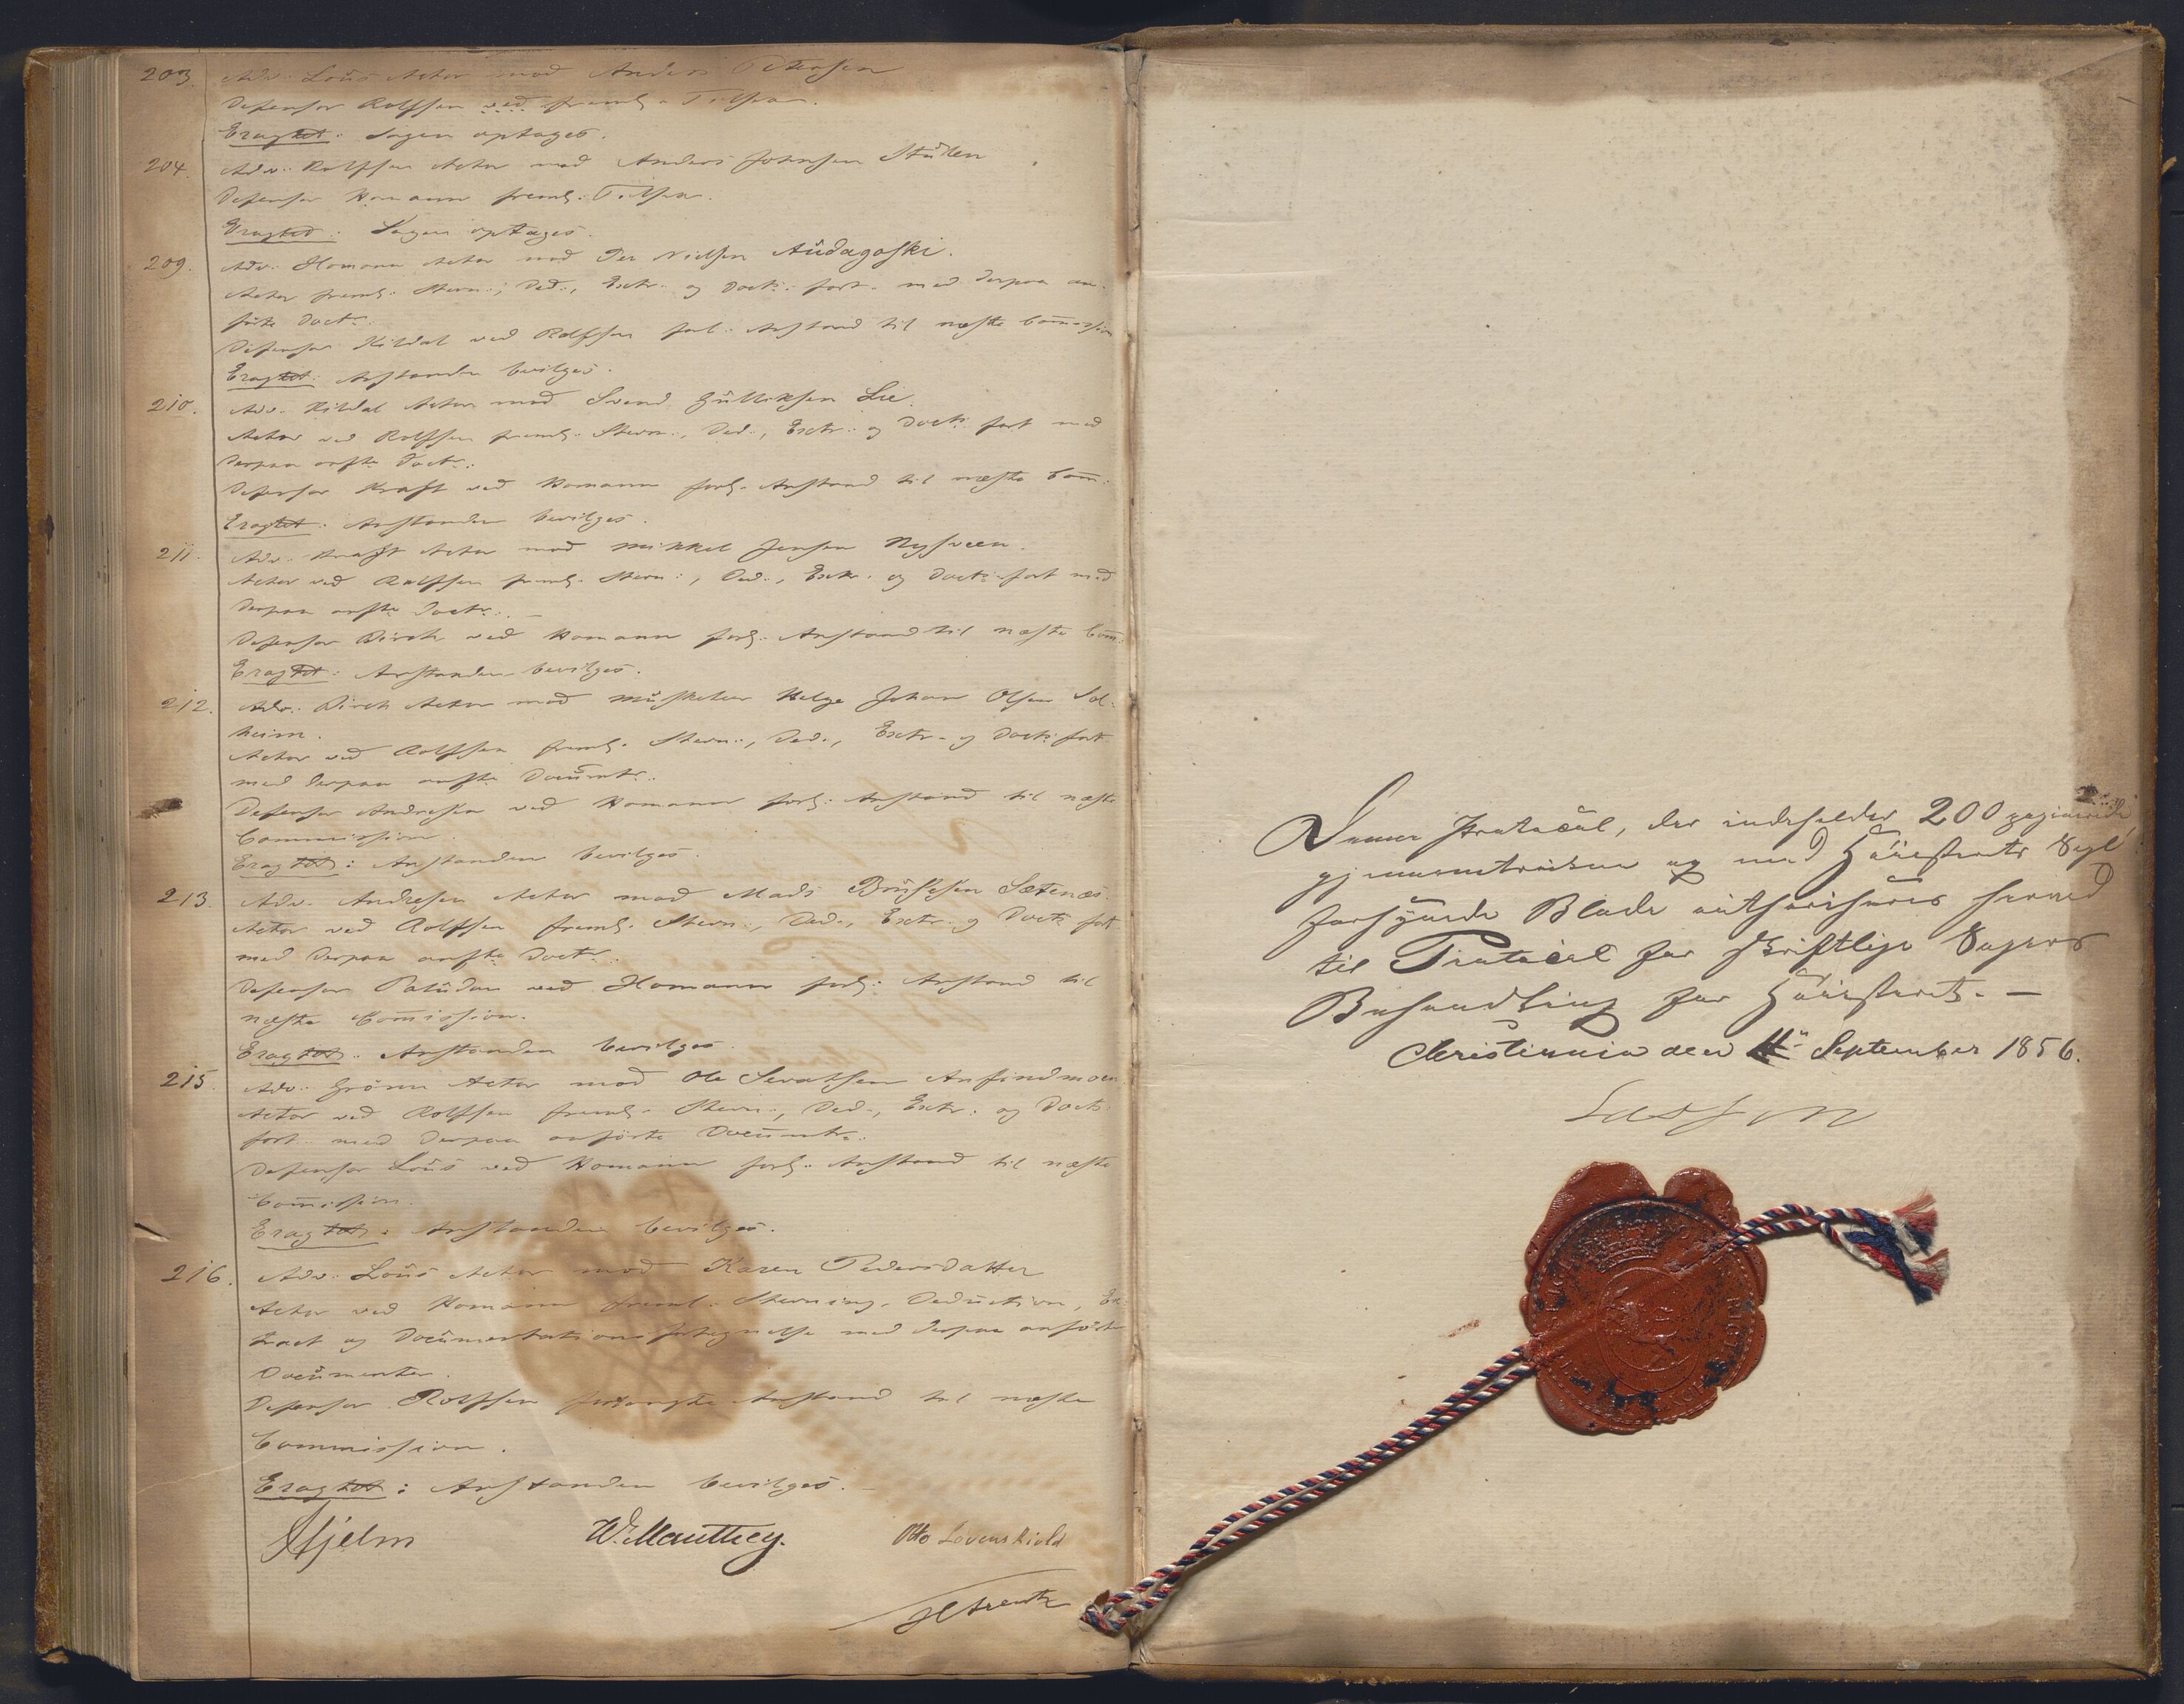 203. Adv. Loüs Actor mod Anders Petersen
Defensor Rolfsen ved freml. Tilsvar.
Eragtet: Sagen optages.
204. Adv. Rolfsen Actor mod Anders Johnsen Stüklen
Defensor Homann freml. Tilsvar.
Eragtet: Sagen optages.
209. Adv. Homann Actor mod Per Nielsen Aüdagoski.
Actor freml. Stevn:, Ded:, Extr: og Doct: fort: med derpaa an-
førte Doct:
Defensor Hildal ved Rolfsen forl: Anstand til næste Com̅ission
Eragtet: Anstanden bevilges.
210. Adv. Hildal Actor mod Svend Gülliksen Lie.
Actor ved Rolfsen freml. Stevn:, Ded:, Extr: og Doct: fort med
derpaa anfte Doctr:
Defensor Kraft ved Homann forl. Anstand til næste Com̅:
Eragtet: Anstanden bevilges.
211. Adv. Kraft Actor mod Mikkel Jensen Nysveen.
Actor ved Rolfsen freml. Stevn:, Ded:, Extr. og Doct: fort med
derpaa anfte Doctr: —
Defensor Birch ved Homann forl: Anstand til næste Com̅:
Eragtet: Anstanden bevilges.
212. Adv. Birch Actor mod Müsketeer Helge Johan Olsen Sol-
heim.
Actor ved Rolfsen freml. Stevn:, Ded:, Extr. og Doct: fort
med derpaa anfte Documtr:
Defensor Andresen ved Homann forl: Anstand til næste
Commission.
Eragtet: Anstanden bevilges.
213. Adv. Andresen Actor mod Mads Sætenæs.
Actor ved Rolfsen freml. Stevn:, Ded:, Extr. og Doct: fort
med derpaa anfte Doctr:
Defensor Palüdan ved Homann forl: Anstand til
næste Com̅ission.
Eragtet: Anstanden bevilges.
215. Adv. Grönn Actor mod Ole Sevatsen Anfindmoen
Actor ved Rolfsen freml. Stevn:, Ded:, Extr: og Doct:
fort. med derpaa anførte Documtr:
Defensor Loüs ved Homann forl: Anstand til næste
Com̅ission.
Eragtet: Anstanden bevilges.
216. Adv. Loüs Actor mod Karen Pedersdatter
Actor ved Homann freml. Stevning, Deduction, Ex-
tract og Documentationsfortegnelse med derpaa anførte
Documenter.
Defensor Rolfsen forlangte Anstand til næste
Commission.
Eragtet: Anstanden bevilges. —
Hjelm W. Manthey. Otto Løvenskiold
Denne Protocol, der indeholder 200 paginerede
gjennemtrukne og med Høiesterets Segl
forsynede Blade authoriseres herved
til Protocol for skriftlige Sagers
Behandling for Høiesteret. —
Christiania den 11te September 1856.
Lasson